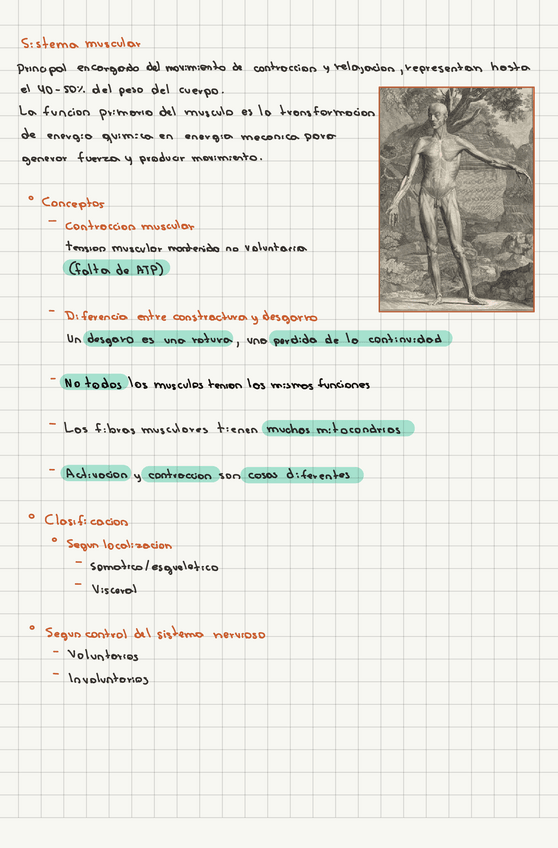 Sistema muscular
Principal encargado del movimiento de contraccion y relajacion, representan hasta
el 40-50% del peso del cuerpo.
La funcion primaria del musculo es la transformacion
de energia quimica en energia mecanica para
generar fuerza y producir movimiento.
° Conceptos
- Contraccion muscular
tension muscular mantenida no voluntaria
(falta de ATP)
- Diferencia entre constractura y desgarro
Un desgaro es una rotura, una perdida de la continuidad
- No todos los musculos tenian los mismos funciones
- Las fibras musculares tienen muchas mitocondrias
- Activacion y contraccion son cosas diferentes
° Clasificacion
° Segun localizacion
- Somatico/esqueletico
- Visceral
° Segun control del sistema nervioso
- Voluntarios
- Involuntarios